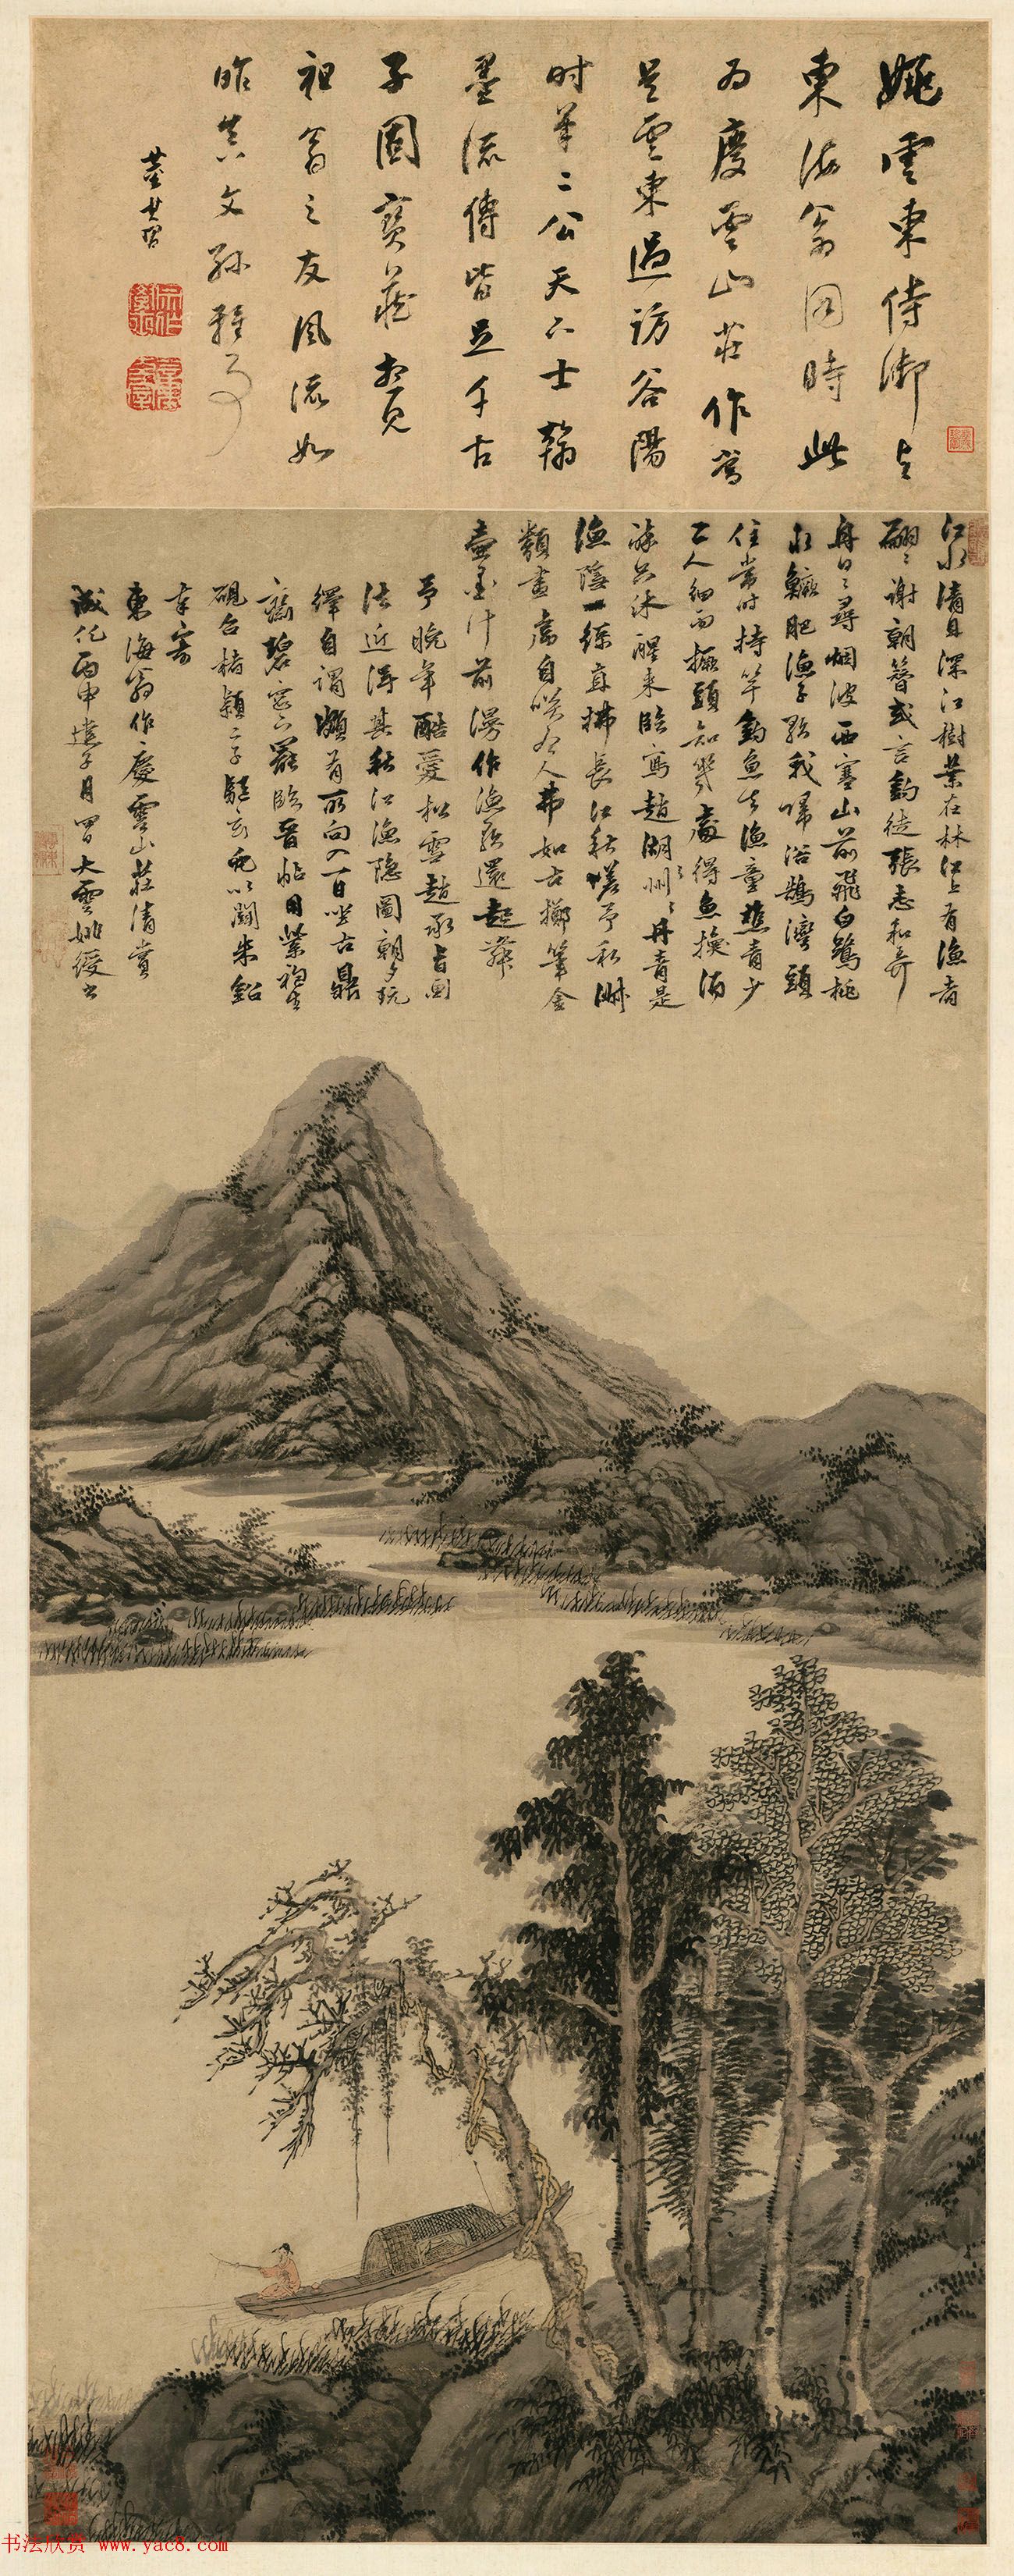 姚雲東侍御與
東海翁同時此
為慶雲山莊作當
是雲東過訪谷陽
時筆二公天下士翰
墨流傳皆足千古
子固寶藏想見
祖翁之友風流如
昨真文孫雅事
董其昌
江水清且深江樹葉在林江上有漁者
翩翩謝朝簪或言釣徒張志和弄
舟日日尋烟波西塞山前飛白鷺桃
水鱖肥漁子歌我歸浴鵠灣頭
住常時持竿釣魚去漁童樵青少
二人細雨撅頭知幾處得魚換酒
沐醒來臨寫趙湖州湖州丹青是
漁隱一練直拂長江秋嗟予私淑
類畫虎自笑今人弗如古擲筆金
壺墨汁前漫作漁歌還起舞
予晚年酷愛松雪趙承旨画
法近得其秋江漁隱圖朝夕玩
繹自謂頗有所向入一日坐古鼎
齋碧窗下罷臨晉帖因紫袍生
硯合楮穎二子疑以閒朱鉛
奉寄
東海翁作慶雲山莊清賞
成化丙申建子月四日大雲姚綬書
书法欣赏 www.yac8.com